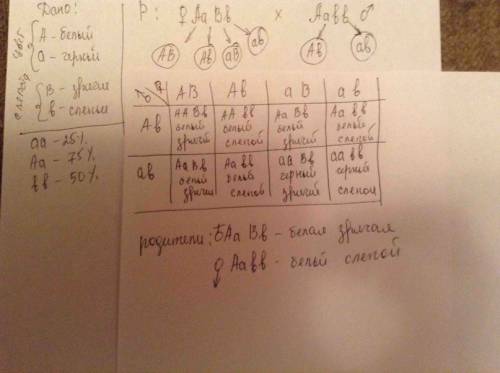 Дано:
цвет
А - белый
а - черный
слепой
В - зрячие
в - слепые
аа - 25%
Аа - 75%
вв - 50%
Р: ♀ АаВв х Аавв ♂
АВ Ав аВ ав Ав ав
♂ ♀ АВ Ав аВ ав
Ав ААВв белый зрячий ААвв белый слепой АаВв белый зрячий Аавв белый слепой
ав АаВв белый зрячий Аавв белый слепой ааВв черный зрячий аавв черный слепой
родители: АаВв - белая зрячая
♀ Аавв - белый слепой